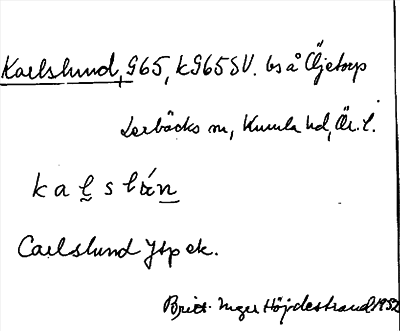 Karlslund, G65, kG65SV. bs å Öjetorp
Lerbäcks sn, Kumla hd, Ör. l.
kalslán
Carlslund Jtp ek.
Britt-Inger Höjdestrand 1952